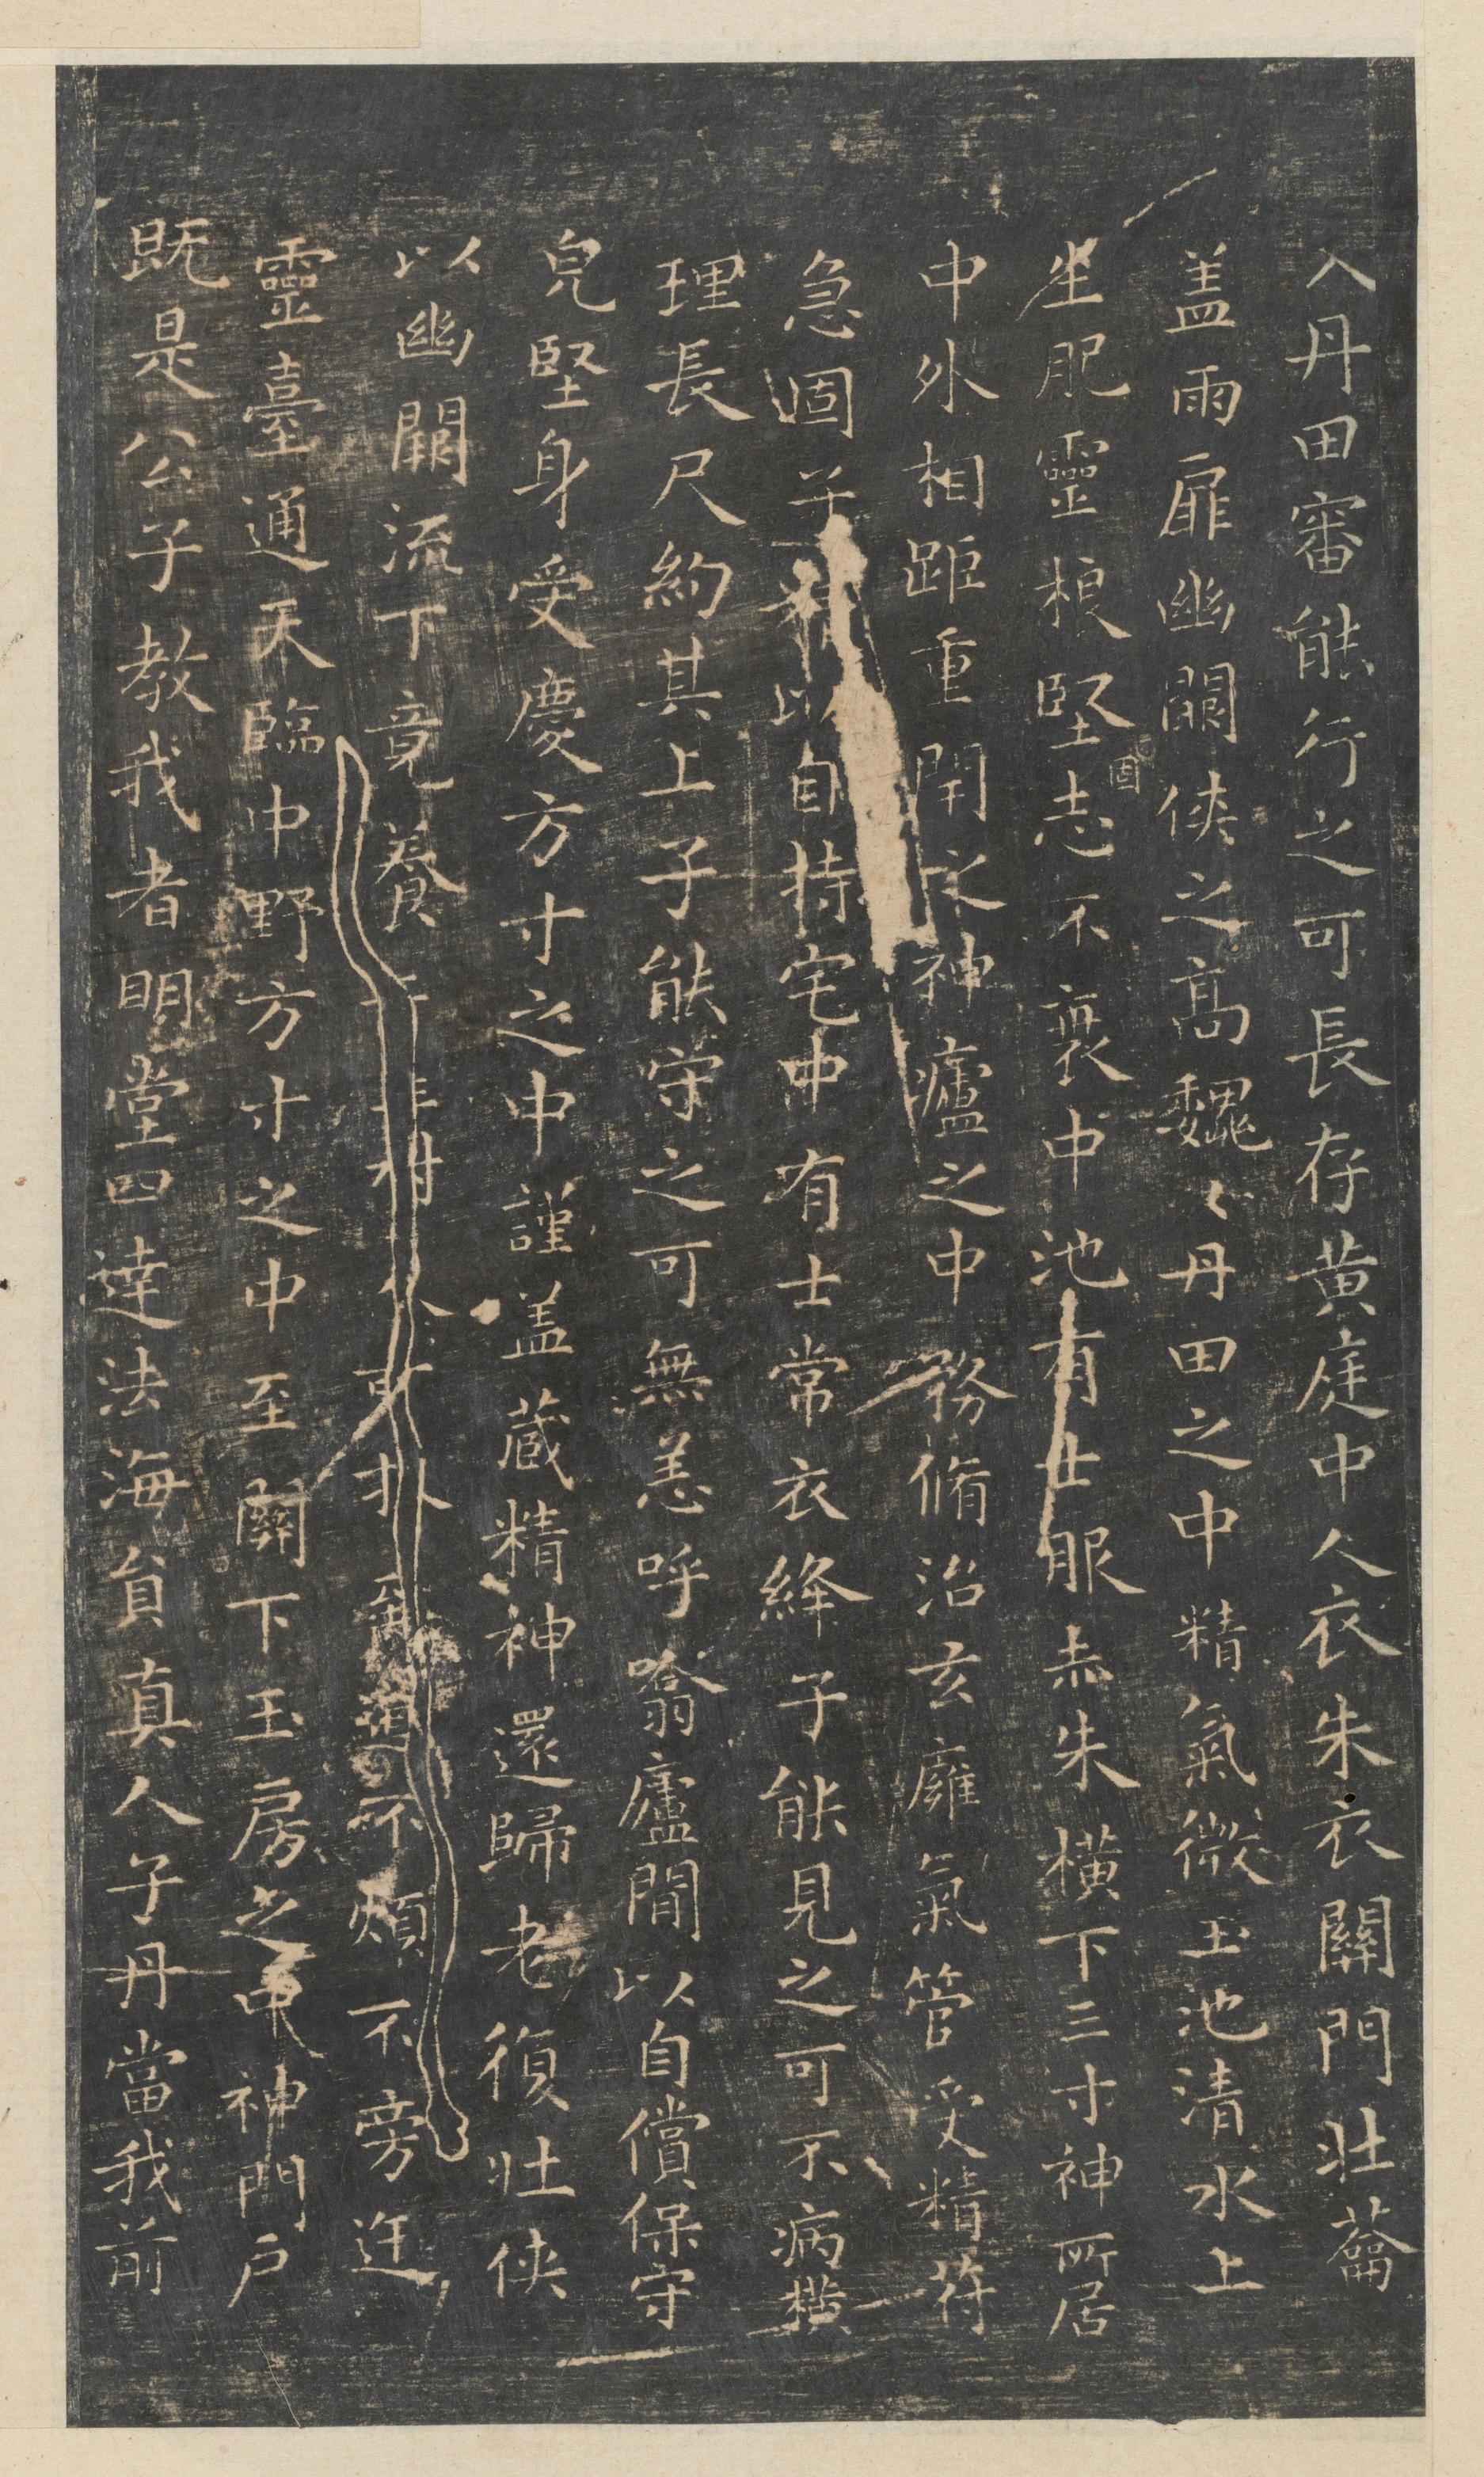 入丹田審能行之可長存黃庭中人衣朱衣關門壯蘥
盖兩扉幽闕俠之高巍〻丹田之中精氣微玉池清水上
生肥靈根堅志不衰中池有士服赤朱橫下三寸神所居
固
中外相距重閇之神廬之中務脩治玄廱氣管受精符
急固子精以自持宅中有士常衣絳子能見之可不病橫
理長尺約其上子能守之可無恙呼噏廬間以自償保守
皃堅身受慶方寸之中謹盖藏精神還歸老復壯俠
以幽闕流下竟養子玉樹不可扙至道不煩不旁迕
靈臺通天臨中野方寸之中至關下玉房之中神門戶
既是公子教我者明堂四達法海貟真人子丹當我前